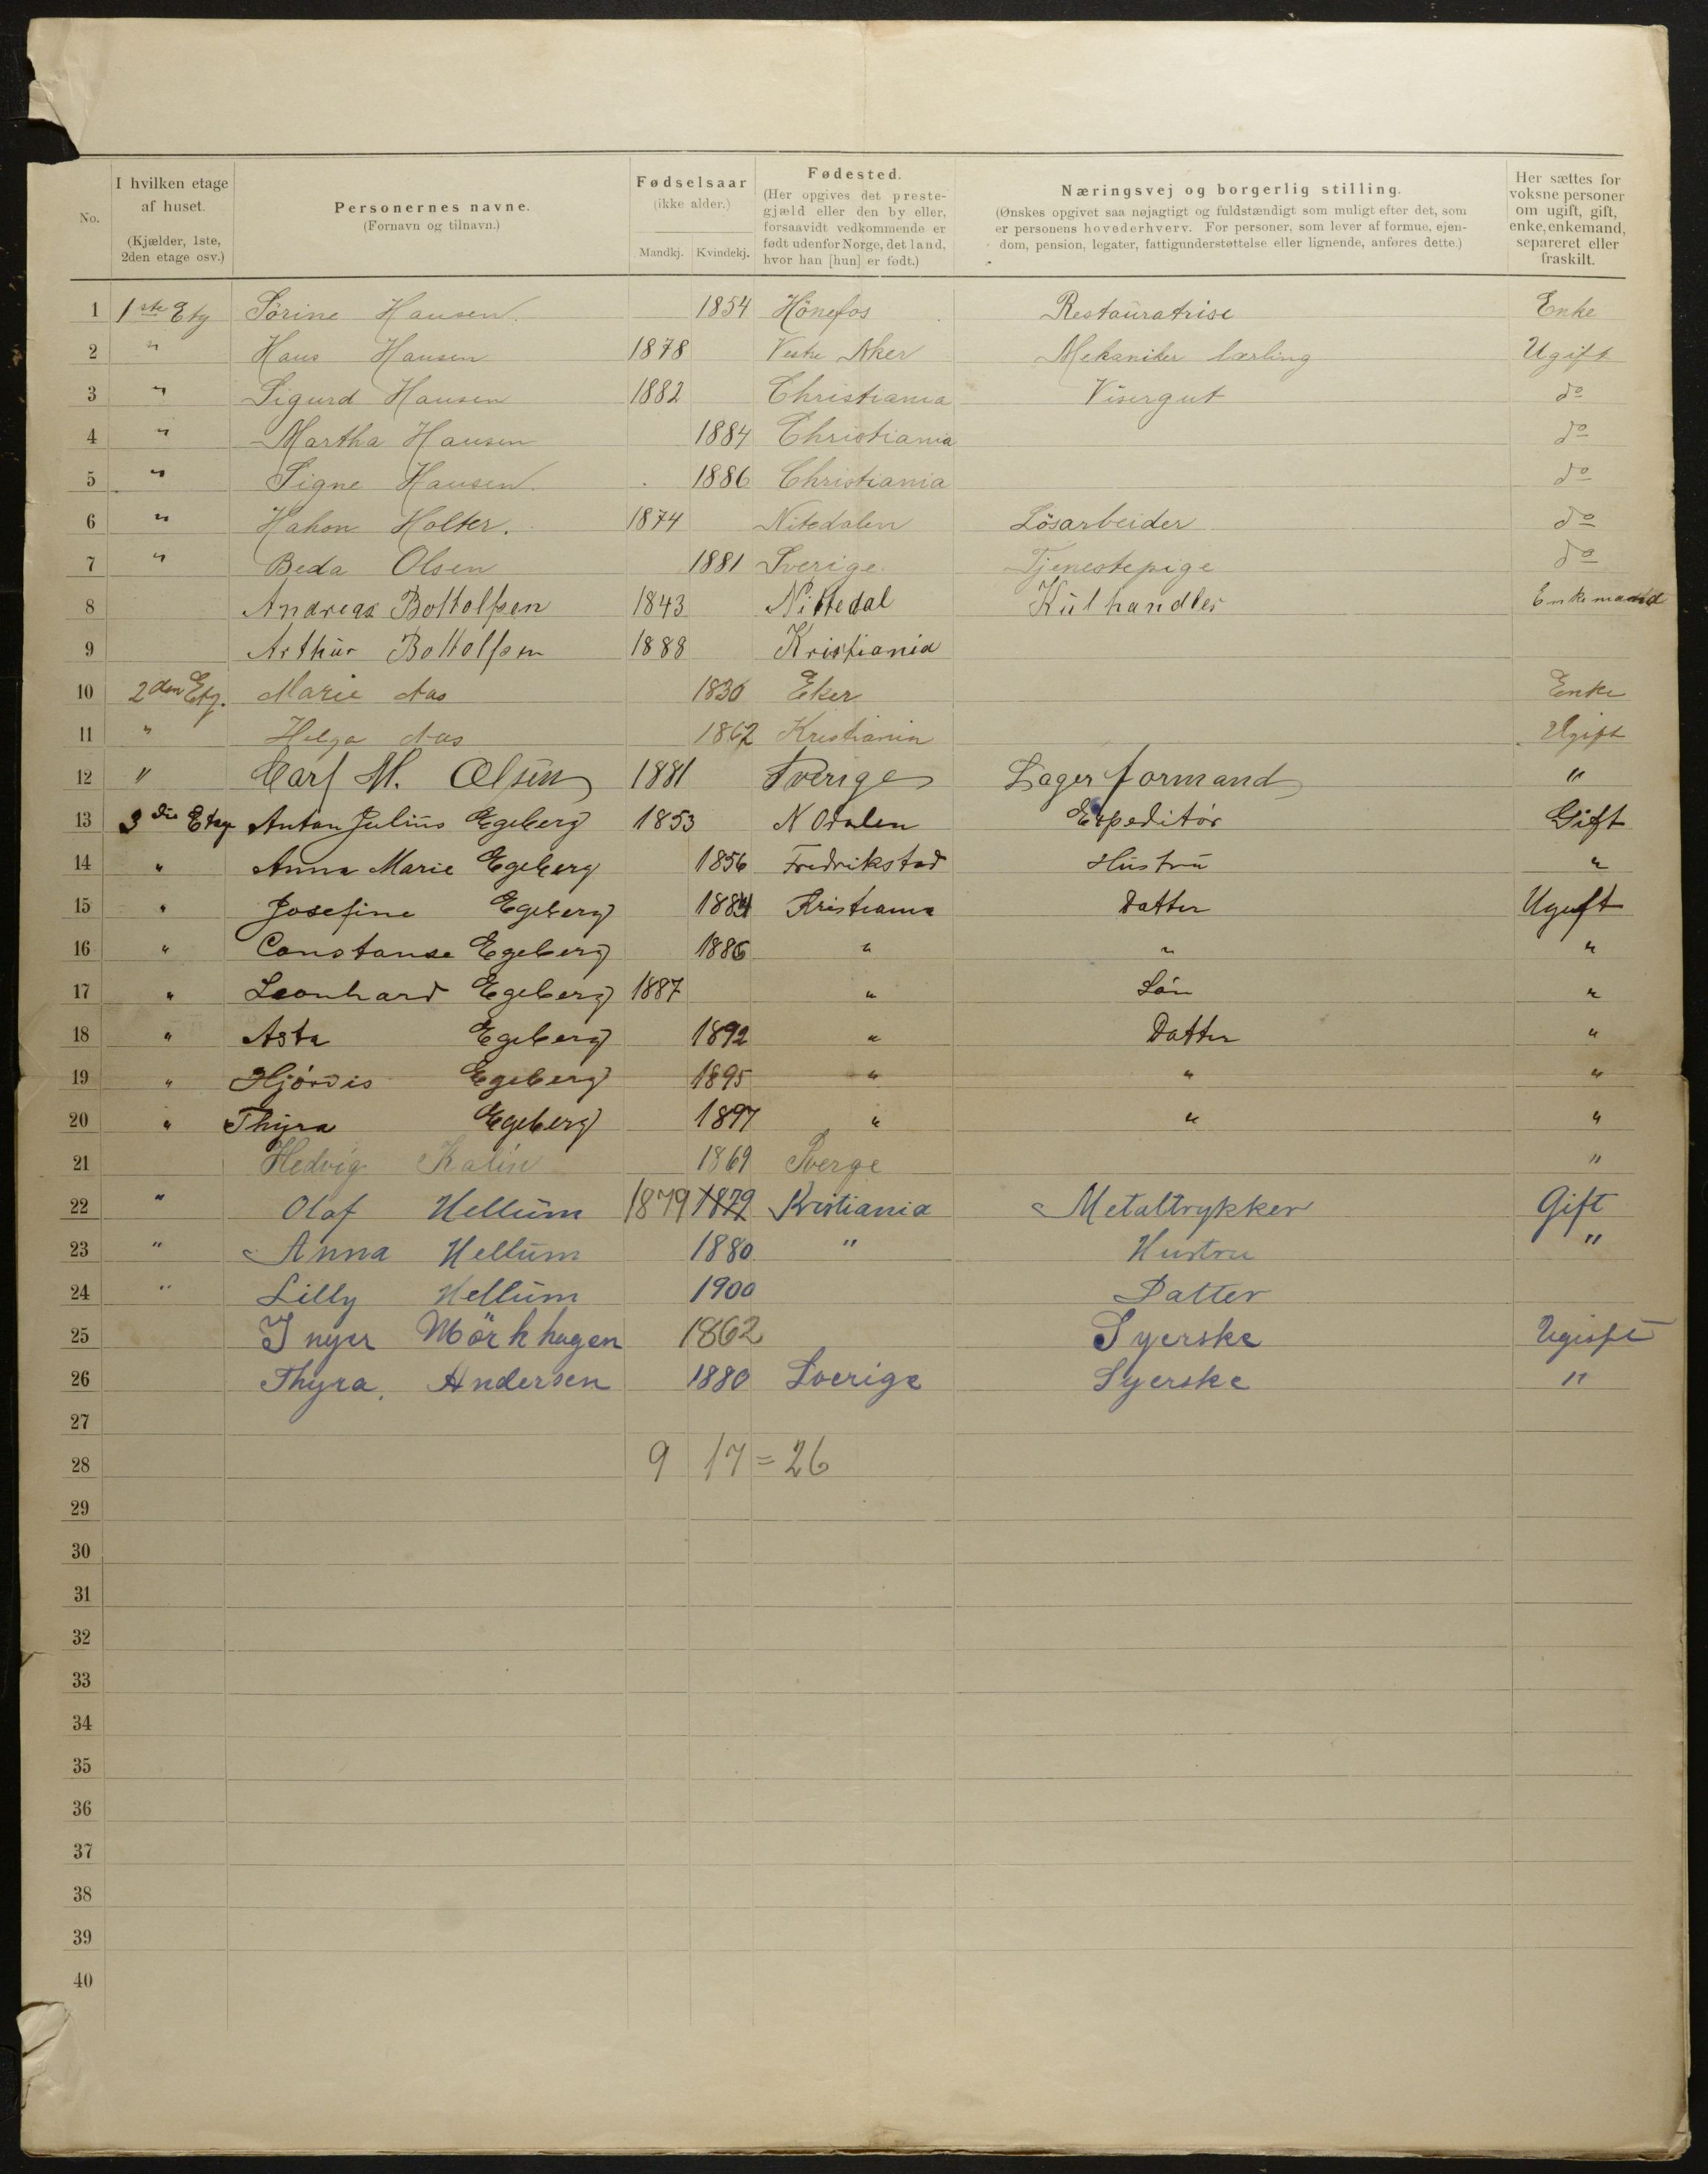 No.
I hvilken etage
af huset.
(Kjælder, 1ste,
2den etage osv.)
Personernes navne.
(Fornavn og tilnavn.)
Fødselsaar
(ikke alder.)
Mandkj. Kvindekj.
Fødested.
(Her opgives det preste-
gjæld eller den by eller,
forsaavidt vedkommende er
født udenfor Norge, det land,
hvor han [hun] er født.)
Næringsvej og borgerlig stilling.
(Ønskes opgivet saa nøjagtigt og fuldstændigt som muligt efter det, som
er personens hovederhverv. For personer, som lever af formue, ejen-
dom, pension, legater, fattigunderstøttelse eller lignende, anføres dette.)
Her sættes for
voksne personer
om ugift, gift,
enke, enkemand,
separeret eller
fraskilt.
1 1ste Etg Sörine Hansen. 1854 Hönefos Restauratrise Enke
2 " Hans Hansen 1878 Vestre Aker Mekaniker lærling Ugift
3 " Sigurd Hansen 1882 Christiania Visergut do
4 " Martha Hansen 1884 Christiania do
5 " Signe Hansen. 1886 Christiania do
6 " Hakon Holter. 1874 Nitedalen Lösarbeider do
7 " Beda Olsen 1881 Sverige Tjenestepige do
8 Andreas Bottolfsen 1843 Nittedal Kulhandler Enkemand
9 Arthur Bottolfsen 1888 Kristiania
10 2den Etg. Marie Aas 1830 Eker Enke
11 " Helga Aas 1862 Kristiania Ugift
12 " Carl M. Olsen 1881 Sverige Lagerformand "
13 3die Etag Anton Julius Egeberg 1853 N Odalen Expeditör Gift
14 " Anna Marie Egeberg 1856 Fredrikstad Hustru "
15 " Josefine Egeberg 1884 Kristiania Datter Ugift
16 " Constanse Egeberg 1886 " " "
17 " Leonhard Egeberg 1887 " Sön "
18 " Asta Egeberg 1892 " Datter "
19 " Hjördis Egeberg 1895 " " "
20 " Thyra Egeberg 1897 " " "
21 Hedvig Kalin 1869 Sverge "
22 " Olaf Hellum 1879 1879 Kristiania Metaltrykker Gift
23 " Anna Hellum 1880 " Hustru "
24 " Lilly Hellum 1900 Datter
25 Inger Mörkhagen 1862 Syerske Ugift
26 Thyra. Andersen 1880 Sverige Syerske "
27
28 9 17 = 26
29
30
31
32
33
34
35
36
37
38
39
40